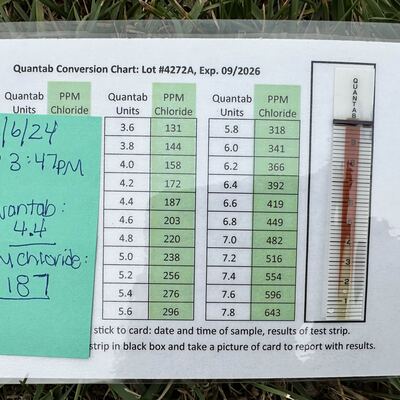 Quantab Conversion Chart: Lot #4272A, Exp. 09/2026
Quantab Units PPM Chloride Quantab Units PPM Chloride Quantab Units PPM Chloride
3.6 131 5.8 318
3.8 144 6.0 341
4.0 158 6.2 366
4.2 172 6.4 392
4.4 187 6.6 419
4.6 203 6.8 449
4.8 220 7.0 482
5.0 238 7.2 516
5.2 256 7.4 554
5.4 276 7.6 596
5.6 296 7.8 643
/6/24
3:47pm
uantab:
4.4
chloride:
187
QUANTAB
9
8
7
6
5
4
3
2
1
stick to card: date and time of sample, results of test strip.
strip in black box and take a picture of card to report with results.